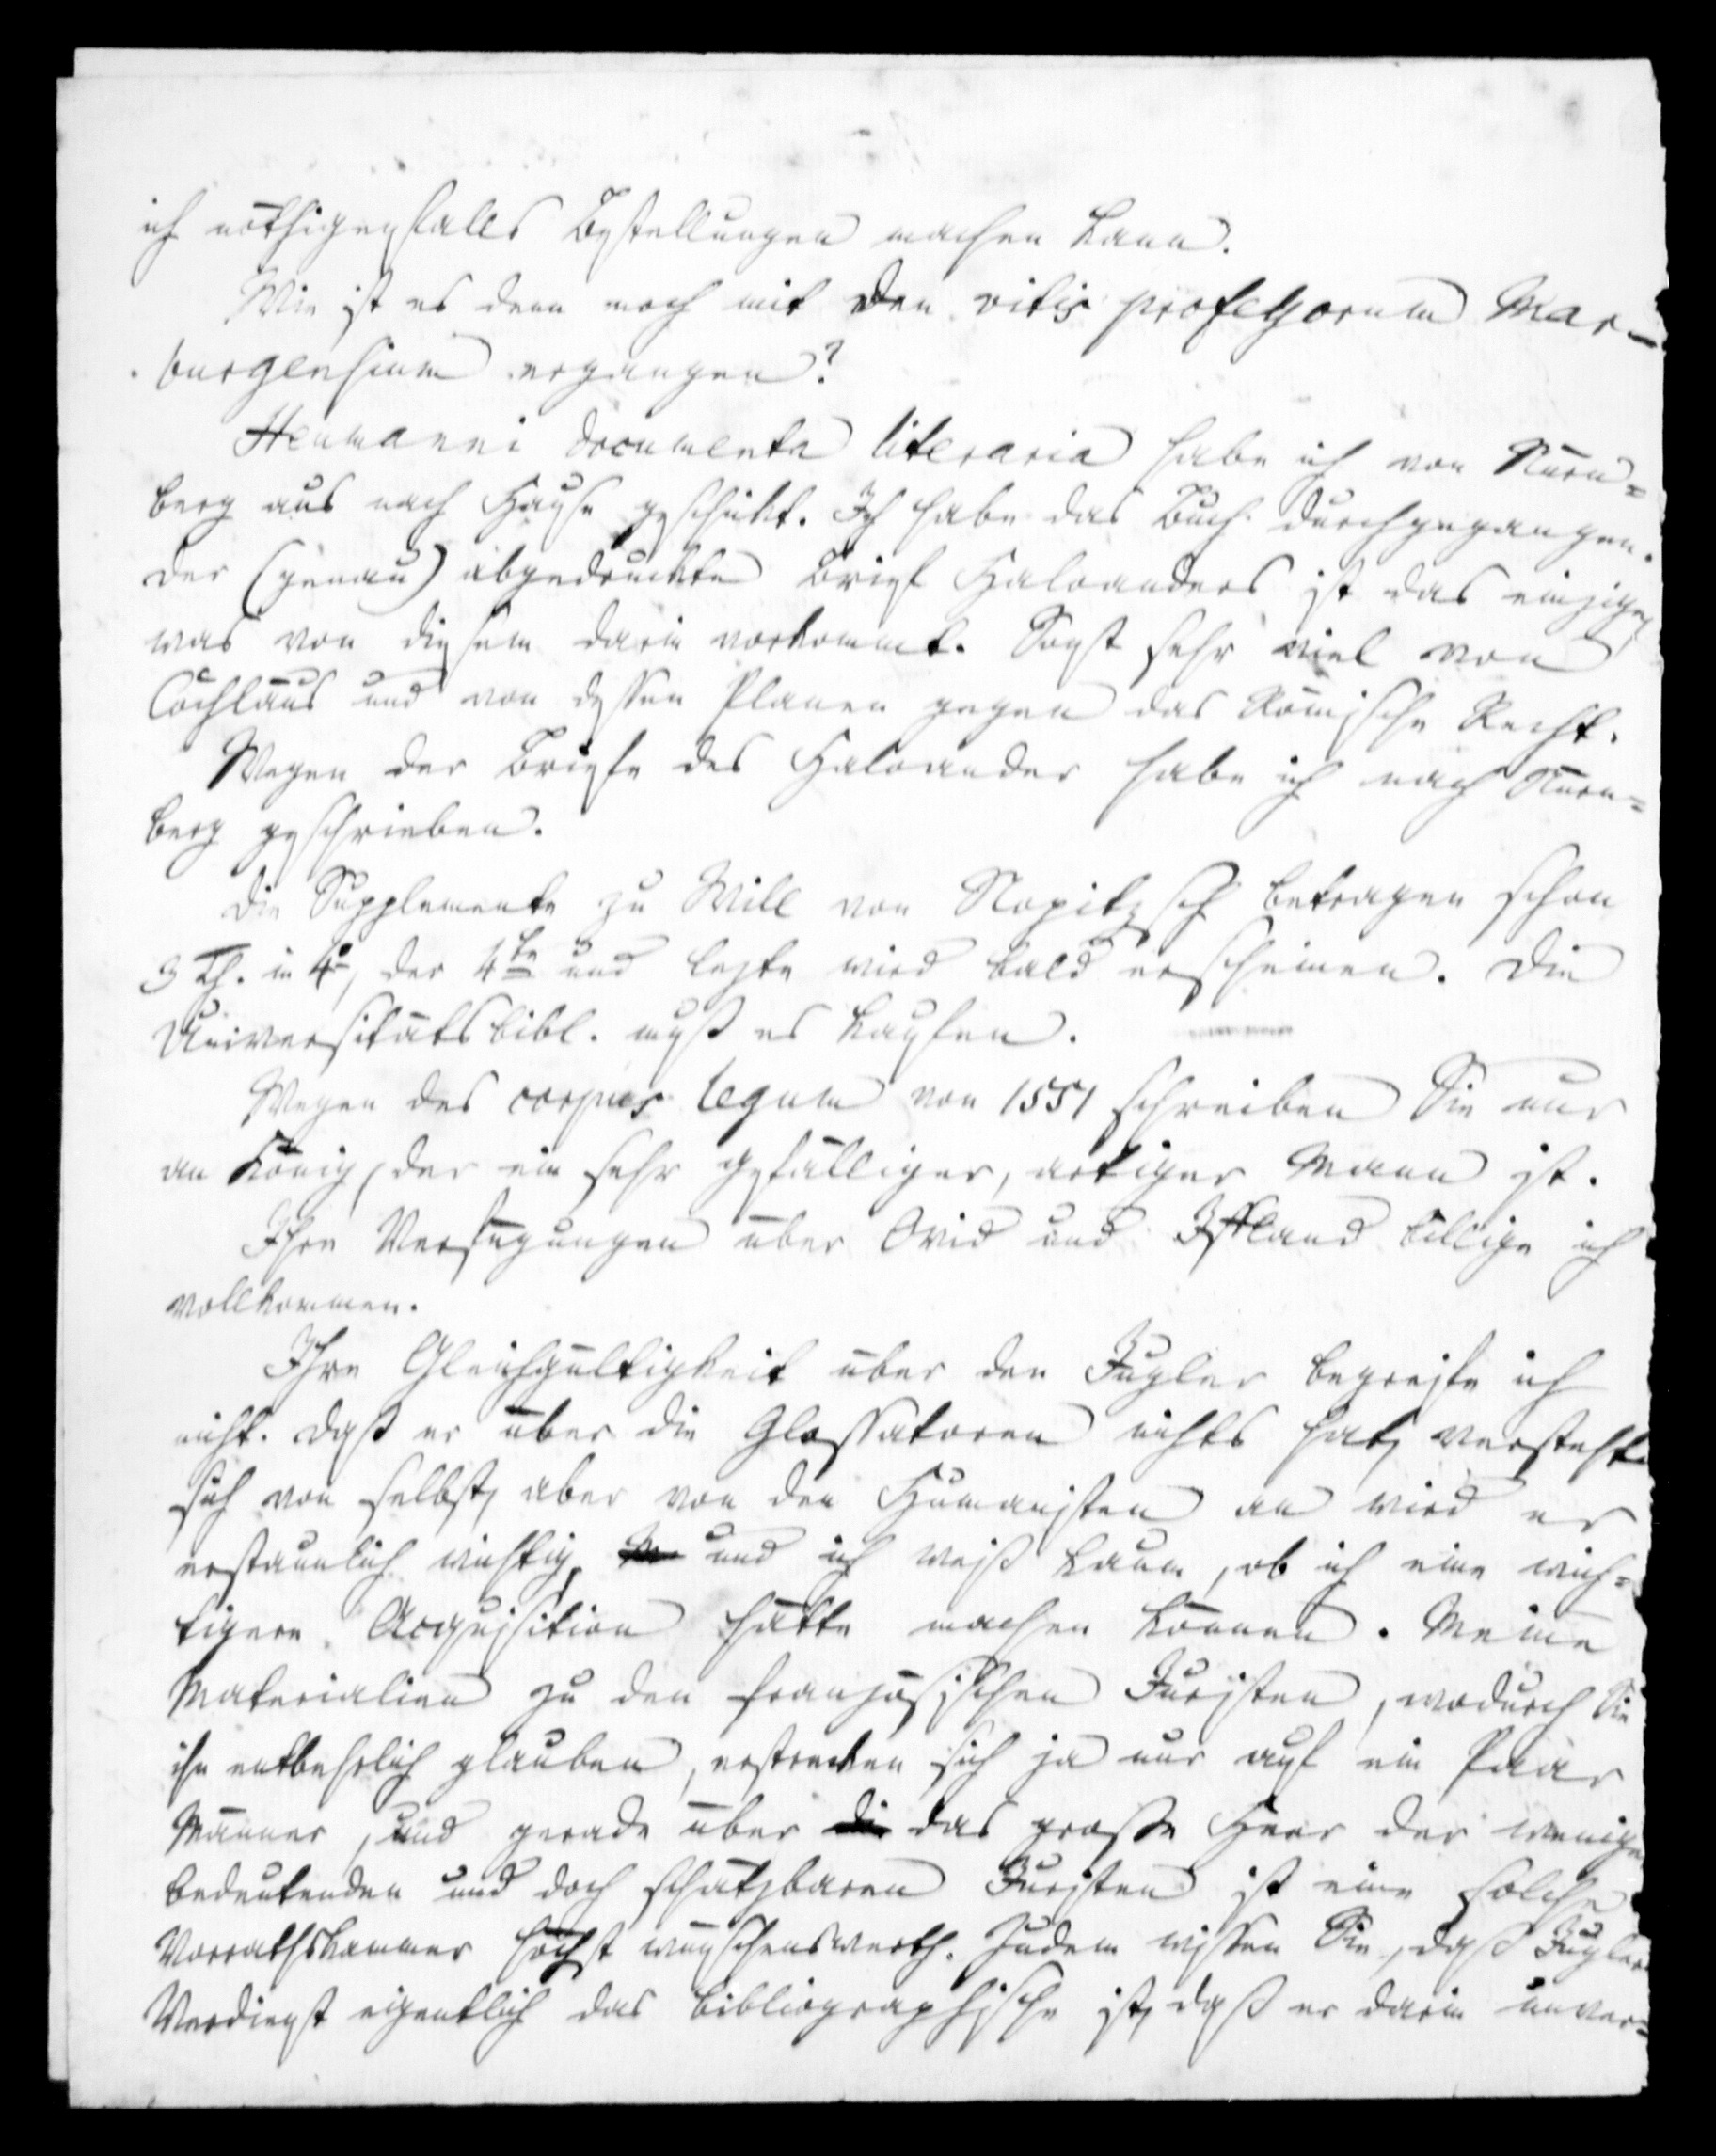 ich nöthigenfalls Bestellungen machen kann.
Wie ist es denn noch mit den vitis professorum Mar-
burgensium ergangen?
Heumanni documenta literaria habe ich von Nürn=
berg aus nach Hause geschickt. Ich habe das Buch durchgegangen.
Der (genau) abgedruckte Brief Haloanders ist das einzige,
was von diesem darin vorkommt. Sonst sehr viel von
Cochläus und von dessen Planen gegen das Römische Recht.
Wegen der Briefe des Haloander habe ich nach Nürn=
berg geschrieben.
Die Supplemente zu Will von Nopitzsch betragen schon
3 Th. in 4°, der 4te und lezte wird bald erscheinen. Die
Universitätsbibl. muß es kaufen.
Wegen des corpus legum von 1551 schreiben Sie nur
an König, der ein sehr gefälliger, artiger Mann ist.
Ihre Verfügungen über Ovid und Iffland billige ich
vollkommen.
Ihre Gleichgültigkeit über den Jugler begreife ich
nicht. Daß er über die Glossatoren nichts hat, versteht
sich von selbst, aber von den Humanisten an wird er
erstaunlich wichtig, und ich weiß kaum, ob ich eine wich=
tigere Acquisition hätte machen können. Meine
Materialien zu den französischen Juristen, wodurch Sie
ihn entbehrlich glauben, erstrecken sich ja nur auf ein Paar
Männer, und gerade über das große Heer der weniger
bedeutenden und doch schätzbaren Juristen ist eine solche
Vorrathskammer höchst wünschenswerth. Zudem wissen Sie, daß Juglers
Verdienst eigentlich das bibliographische ist, daß er darin unver=